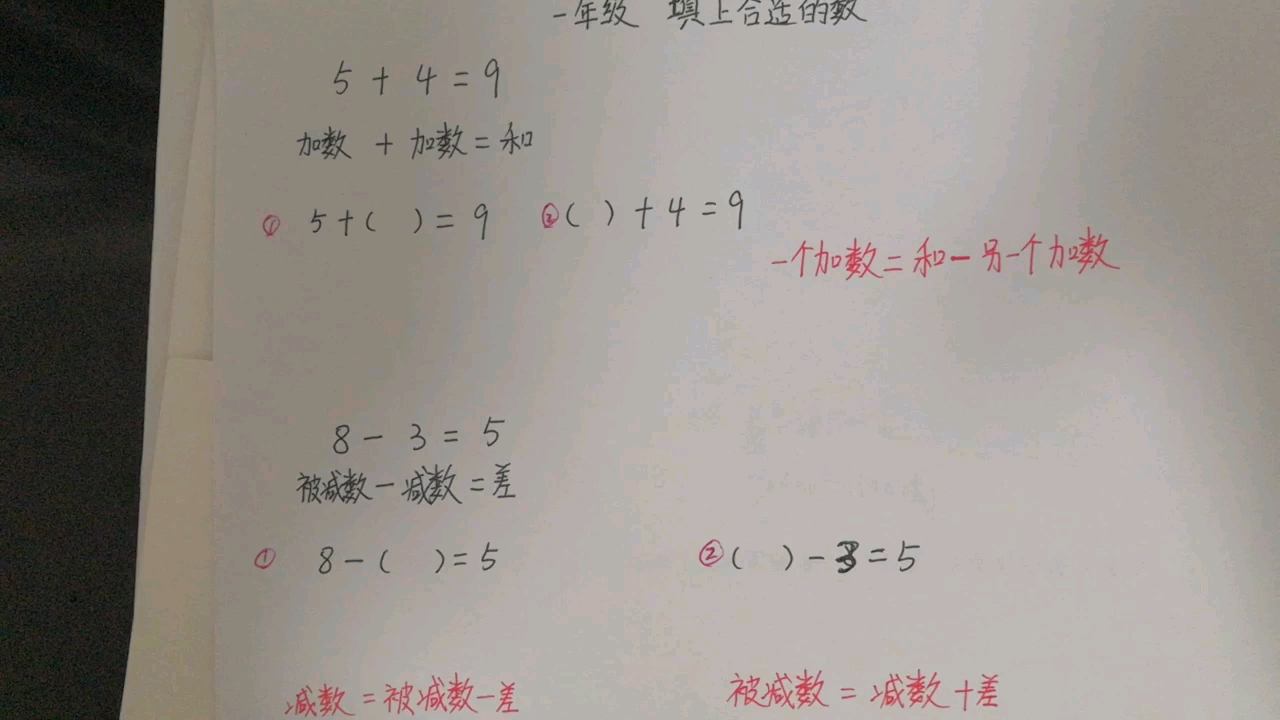 一年级 填上合适的数
5 + 4 = 9
加数 + 加数 = 和
① 5 + ( ) = 9 ② ( ) + 4 = 9
一个加数 = 和 - 另一个加数
8 - 3 = 5
被减数 - 减数 = 差
① 8 - ( ) = 5 ② ( ) - 3 = 5
减数 = 被减数 - 差 被减数 = 减数 + 差